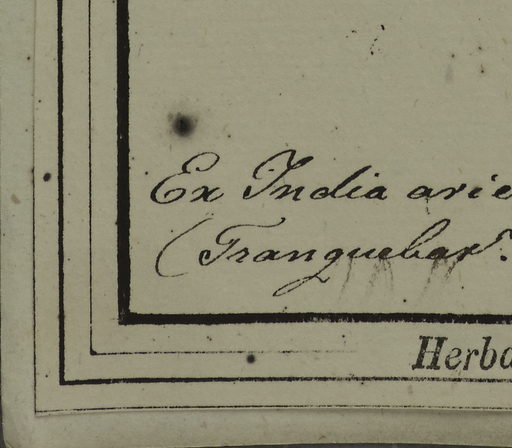 Ex India orie
(Tranquebar.
Herba